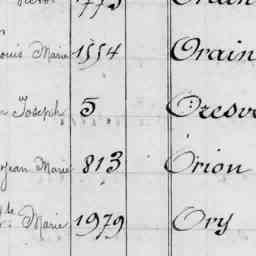 1773
Louis Marie 1554 Orain
Joseph 5 Oresve
Jean Marie 813 Orion
Marie 1979 Ory